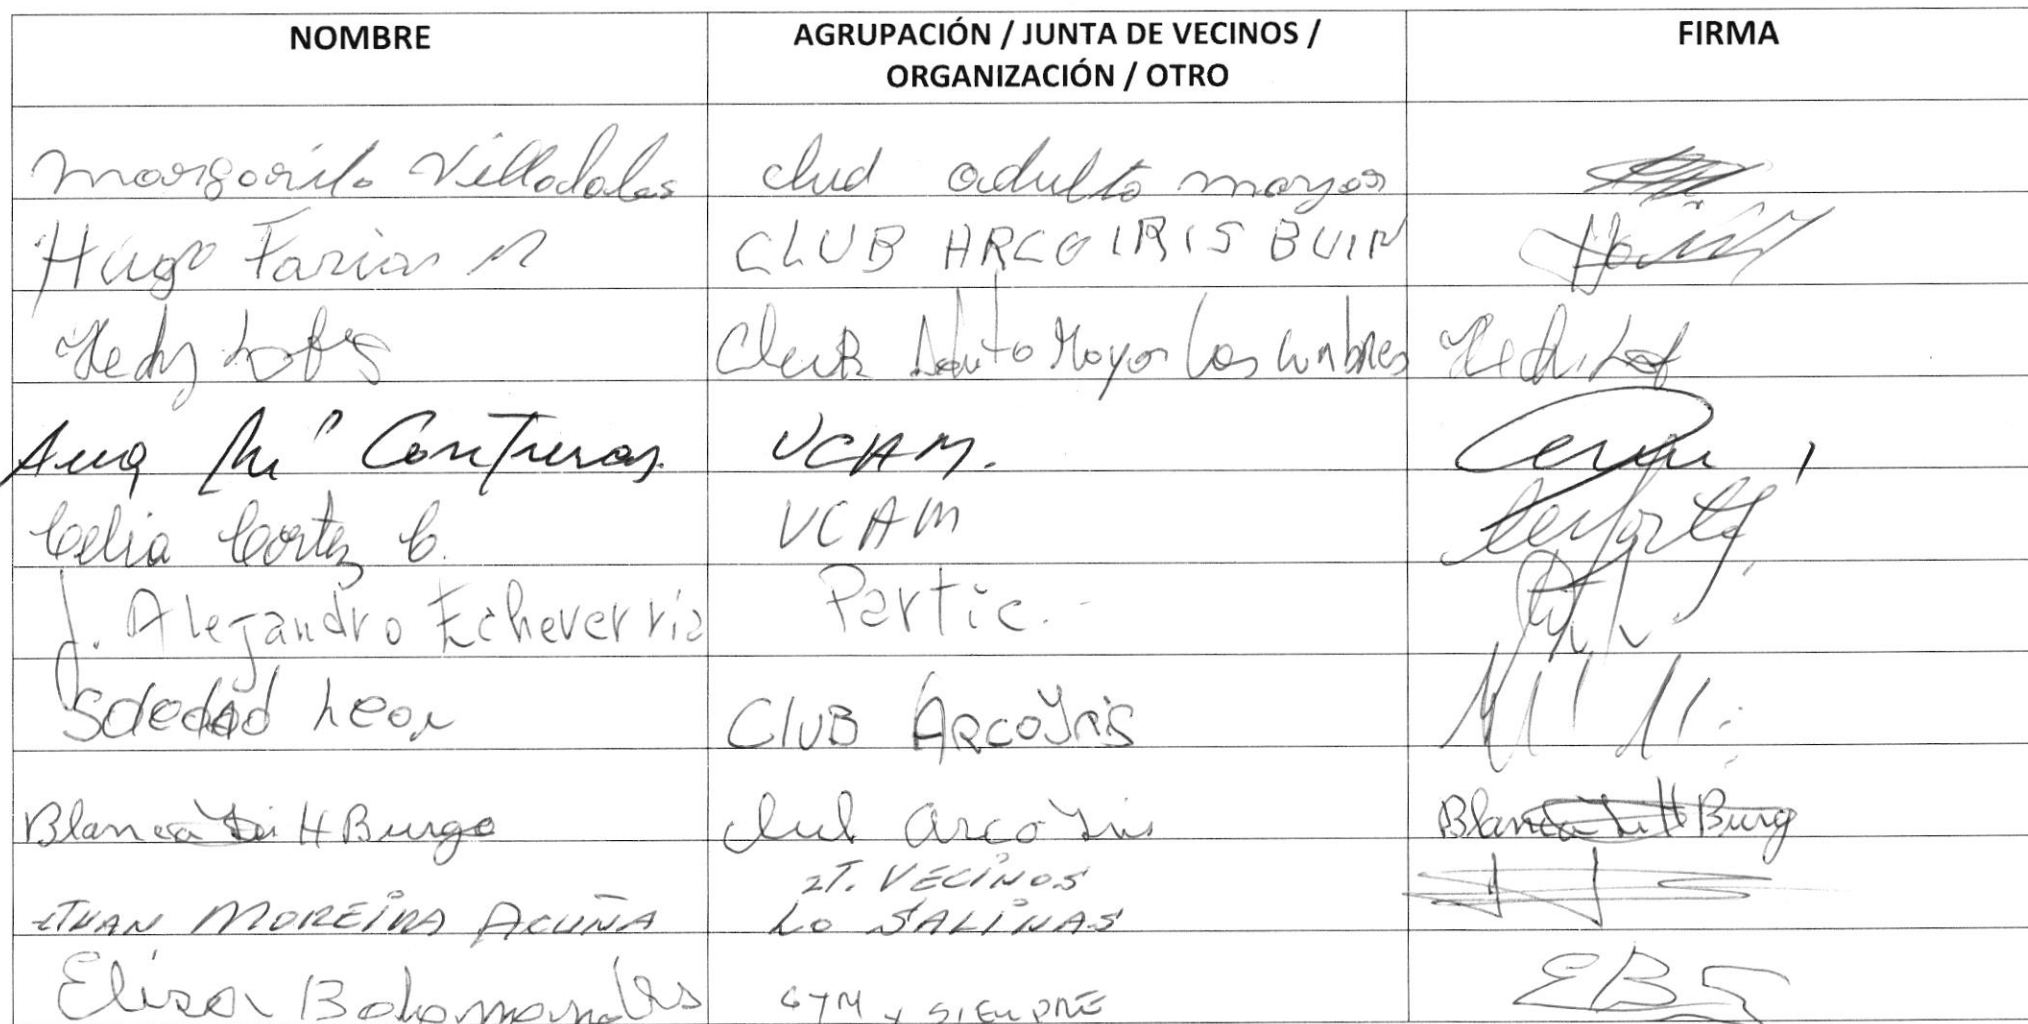 NOMBRE
AGRUPACIÓN / JUNTA DE VECINOS /
ORGANIZACIÓN / OTRO
FIRMA
Margarita Villadalas club adulto mayor
Hugo Farias CLUB ARCOIRIS BUIN
Hedy Club Adulto Mayor Las Cumbres
Ana Mª Contreras UCAM.
Celia Cortez C. UCAM
J. Alejandro Echeverria Partic.
Soledad Leon CLUB ARCOYRIS
Blanca H Burgo club arco Yris Blanca H Burg
JT. VECINOS
JUAN MOREIRA ACUÑA LO SALINAS
Elisa Bahamondes GYM y SIEMPRE EB